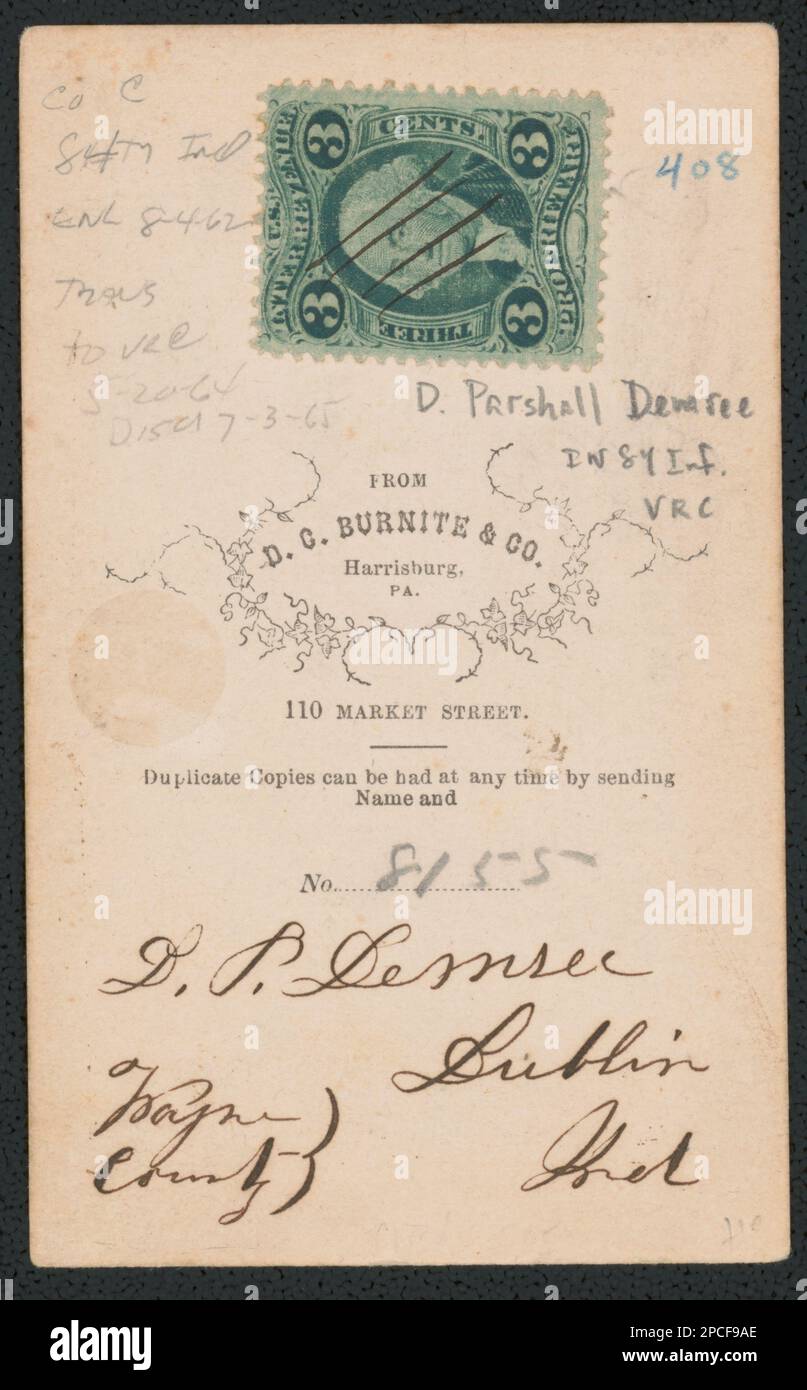 Co C
84th Ind
ENL 8-4-62
Trans
to VRC
5-20-64
Disch 7-3-65
U.S. INTER. REVENUE
3 CENTS. 3
PROPRIETARY
3 THREE 3
408
D. Parshall Demree
IN 84 Inf.
VRC
FROM
D. C. BURNITE & CO.
Harrisburg,
PA.
110 MARKET STREET.
Duplicate Copies can be had at any time by sending
Name and
No. 8155
D. P. Demree
Dublin
Wayne
County
Ind
alamy
Image ID: 2PCF9AE
www.alamy.com